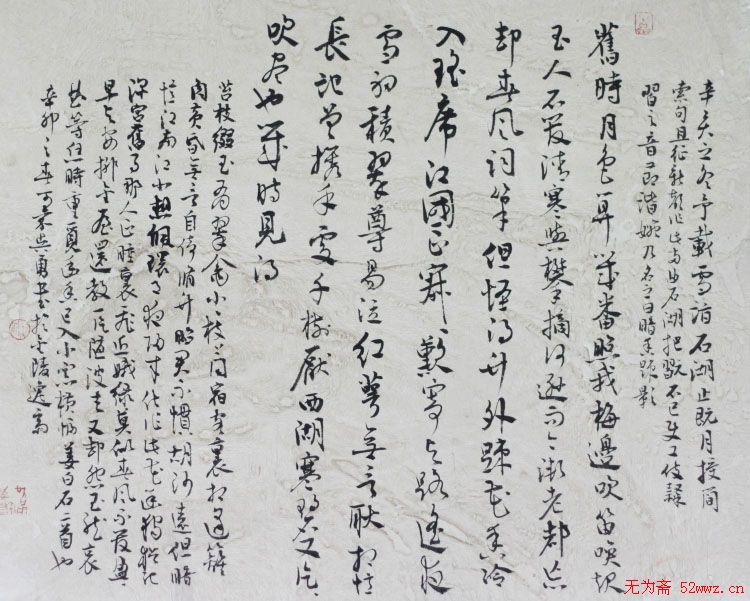 辛亥之冬予载雪诣石湖止既月授简
索句且征新声作此两曲石湖把玩不已使工伎隶
习之音节谐婉乃名之曰暗香疏影
舊時月色算幾番照我梅邊吹笛喚起
玉人不管清寒與攀摘何遜而今漸老都忘
却春风词筆但怪得竹外疏花香冷
入瑤席江國正寂寂歎寄与路遥夜
雪初積翠尊易泣红萼無言耿相憶
長記曾携手處千樹壓西湖寒碧又片片
吹尽也幾時見得
苔枝綴玉有翠禽小小枝上同宿客裏相逢籬
角黄昏無言自倚脩竹昭君不慣胡沙遠但暗
憶江南江北想佩環月夜归来化作此花幽獨猶記
深宫舊事那人正睡裏飛近蛾绿莫似春风不管盈盈
早与安排金屋還教一片随波去又却怨玉龙哀
曲等恁時重覓幽香已入小窗横幅姜白石二首也
辛卯之春 書於金陵
无为斋 52wwz.cn